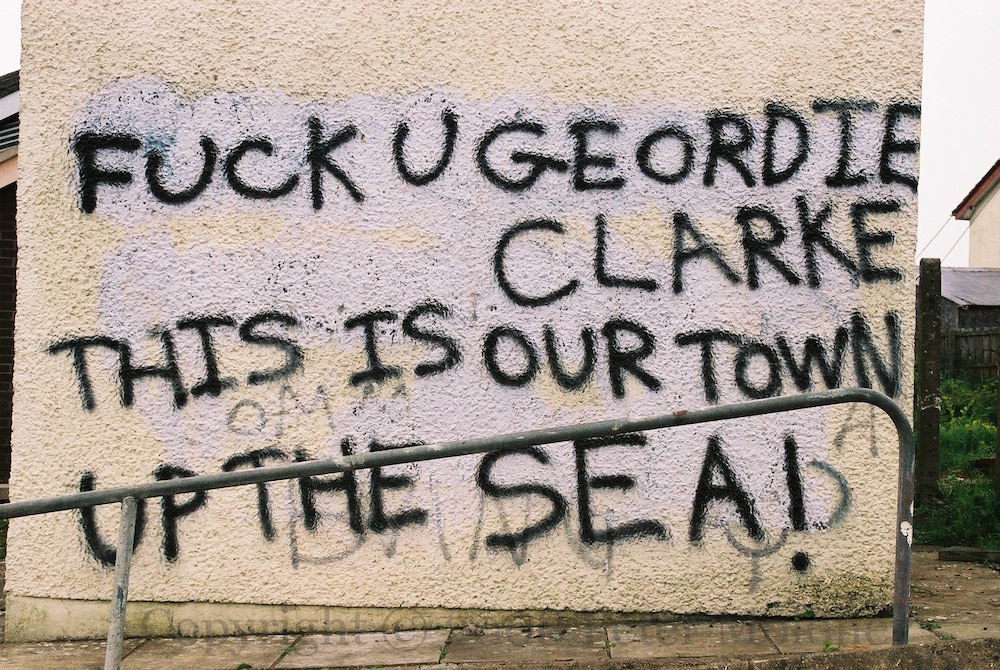 FUCK U GEORDIE
CLARKE
THIS IS OUR TOWN
UP THE SEA!
Copyright ©